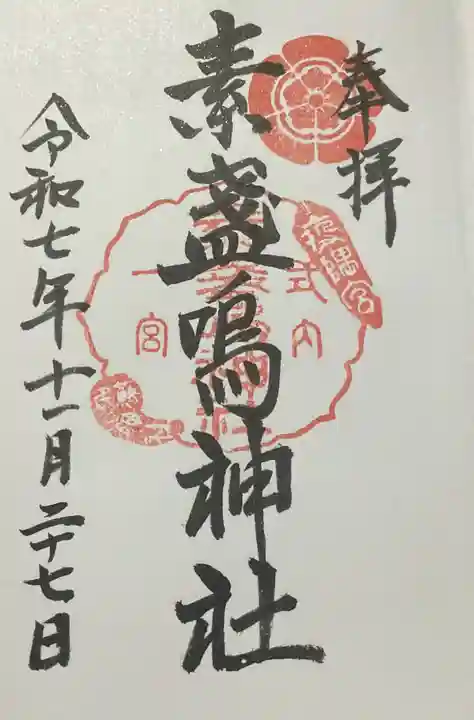 奉拝
素盞嗚神社
令和七年十一月二十七日
疫隅宮
式内
一宮